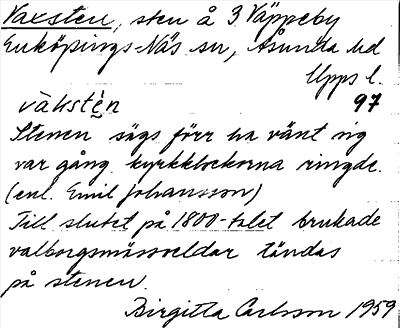 Vaxsten, sten å 3 Väppeby
Enköpings-Näs sn, Åsunda hd
Upps l.
väkstèn 97
Stenen sägs förr ha vänt sig
var gång kyrkklockorna ringde.
(enl. Emil Johansson)
Till slutet på 1800-talet brukade
valborgsmässoeldar tändas
på stenen.
Birgitta Carlsson 1959